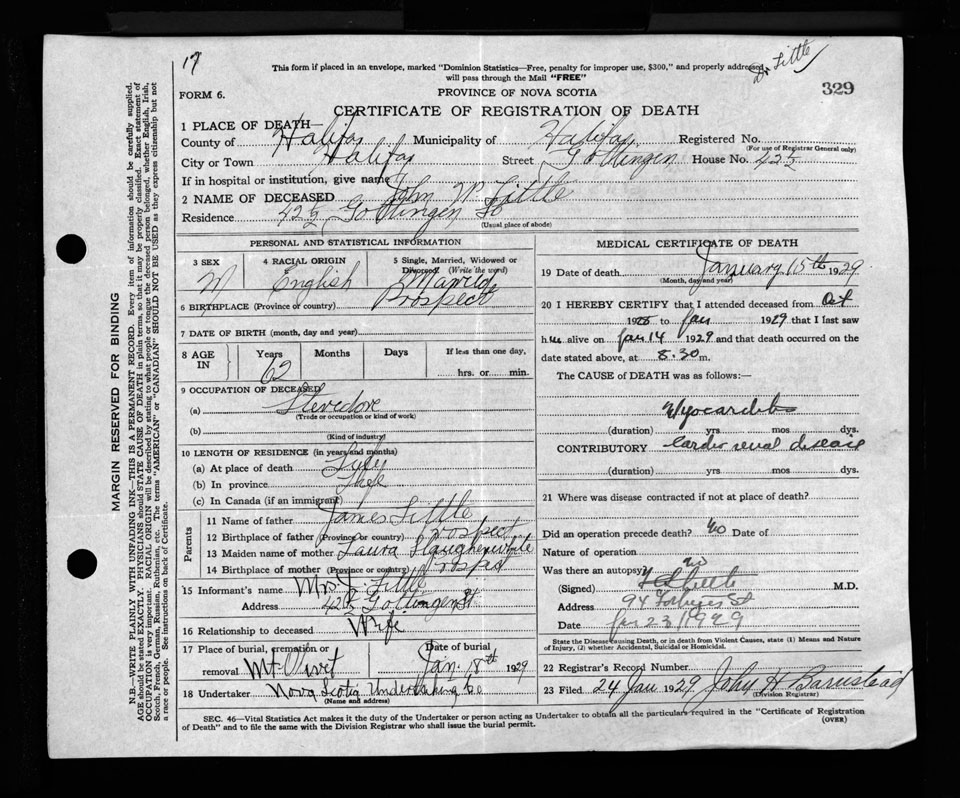 17
Dr Little
This form if placed in an envelope, marked "Dominion Statistics—Free, penalty for improper use, $300," and properly addressed,
will pass through the Mail "FREE"
329
FORM 6.
PROVINCE OF NOVA SCOTIA
CERTIFICATE OF REGISTRATION OF DEATH
1 PLACE OF DEATH—
County of Halifax Municipality of Halifax Registered No.
(For use of Registrar General only)
City or Town Halifax Street Gottingen House No. 42½
If in hospital or institution, give name
2 NAME OF DECEASED John W Little
Residence 42½ Gottingen St
(Usual place of abode)
PERSONAL AND STATISTICAL INFORMATION
3 SEX
M
4 RACIAL ORIGIN
English
5 Single, Married, Widowed or
Divorced (Write the word)
Married
6 BIRTHPLACE (Province or country) Prospect
7 DATE OF BIRTH (month, day and year)
8 AGE IN
Years Months Days If less than one day,
62 hrs. or min.
9 OCCUPATION OF DECEASED
(a) Stevedore
(Trade or occupation or kind of work)
(b)
(Kind of industry)
10 LENGTH OF RESIDENCE (in years and months)
(a) At place of death Life
(b) In province
(c) In Canada (if an immigrant)
Parents
11 Name of father James Little
12 Birthplace of father (Province or country) Prospect
13 Maiden name of mother Laura
14 Birthplace of mother (Province or country)
15 Informant's name Mrs J. Little
Address 42½ Gottingen St
16 Relationship to deceased Wife
17 Place of burial, cremation or Date of burial
removal Mt Olivet Jan. 18th 1929
18 Undertaker Nova Scotia Undertaking Co
(Name and address)
MEDICAL CERTIFICATE OF DEATH
19 Date of death January 15th 1929
(Month, day and year)
20 I HEREBY CERTIFY that I attended deceased from Oct
1928 to Jan 1929 that I last saw
him alive on Jan 14 1929 and that death occurred on the
date stated above, at 8.30 m.
The CAUSE of DEATH was as follows:—
Myocarditis
(duration) yrs. mos. dys.
CONTRIBUTORY Cardio renal disease
(duration) yrs. mos. dys.
21 Where was disease contracted if not at place of death?
Did an operation precede death? No Date of
Nature of operation
Was there an autopsy? no
(Signed) Little M.D.
Address 94 St
Date Jan 23/1929
State the Disease Causing Death, or in death from Violent Causes, state (1) Means and Nature
of Injury, (2) whether Accidental, Suicidal or Homicidal.
22 Registrar's Record Number
23 Filed 24 Jan 1929 John H Barnstead
(Division Registrar)
SEC. 46—Vital Statistics Act makes it the duty of the Undertaker or person acting as Undertaker to obtain all the particulars required in the "Certificate of Registration
of Death" and to file the same with the Division Registrar who shall issue the burial permit.
(OVER)
MARGIN RESERVED FOR BINDING
N.B.—WRITE PLAINLY WITH UNFADING INK—THIS IS A PERMANENT RECORD. Every item of information should be carefully supplied.
AGE should be stated EXACTLY. PHYSICIANS should STATE CAUSE OF DEATH in plain terms, so that it may be properly classified. Exact statement of
OCCUPATION is very important. RACIAL ORIGIN will be described by stating to what people or tongue the deceased person belonged, whether English, Irish,
Scotch, French, German, Russian, Ruthenian, etc. The terms "AMERICAN" or "CANADIAN" SHOULD NOT BE USED as they express citizenship but not
a race or people. See instructions on back of Certificate.